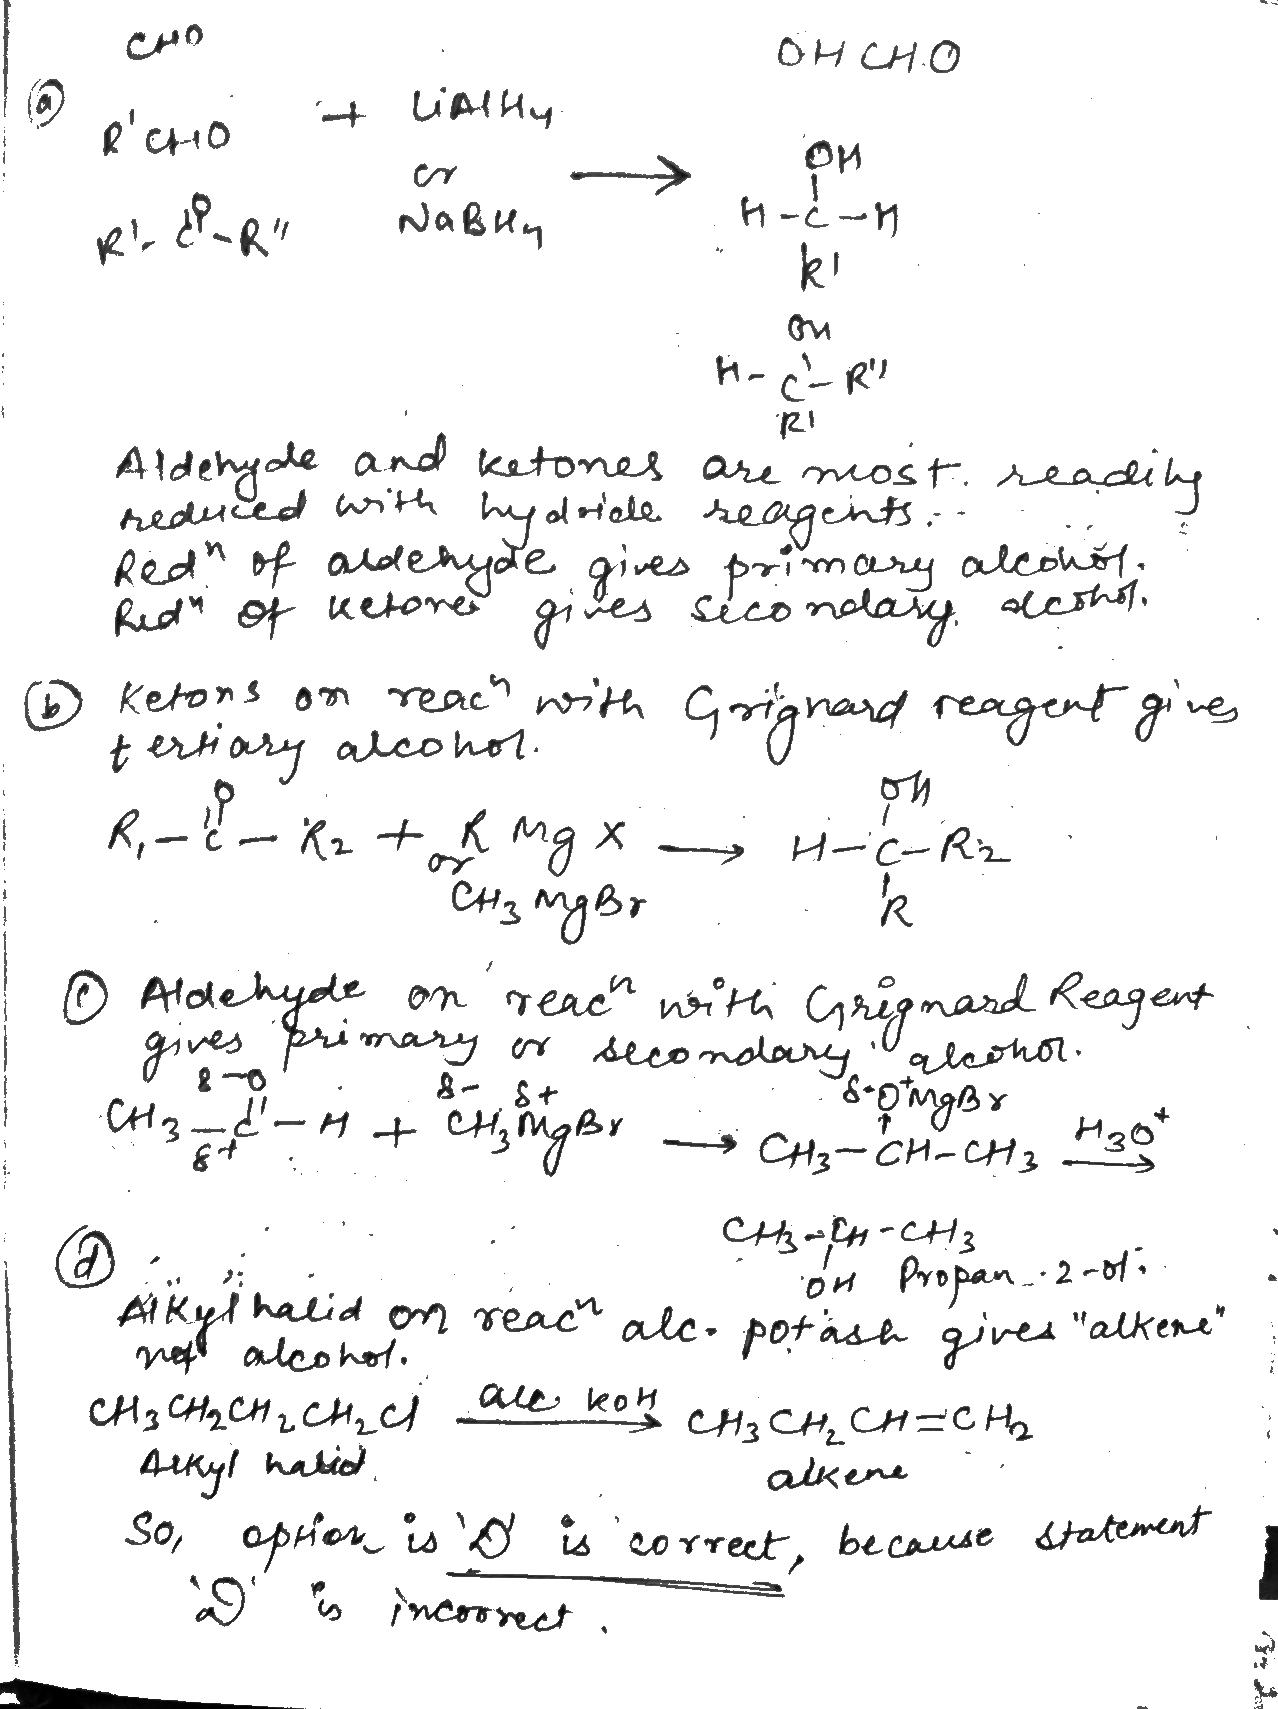 CHO
OH CHO
(a)
R'CHO + LiAlH4
or
NaBH4
→
R'-C-R"
O
OH
H-C-H
R'
OH
H-C-R"
R'
Aldehyde and ketones are most readily
reduced with hydride reagents.
Redn of aldehyde gives primary alcohol.
Redn of ketones gives secondary alcohol.
(b) Ketons on reacn with Grignard reagent gives
tertiary alcohol.
O
OH
R1-C-R2 + R Mg X → H-C-R2
or
CH3MgBr
R
(c) Aldehyde on reacn with Grignard Reagent
gives primary or secondary alcohol.
δ-O δ- δ+ δ-O+MgBr
CH3-C-H + CH3MgBr → CH3-CH-CH3 H3O+ →
δ+
CH3-CH-CH3
OH Propan-2-ol.
(d)
Alkyl halid on reacn alc. potash gives "alkene"
not alcohol.
CH3CH2CH2CH2Cl alc KOH → CH3CH2CH=CH2
Alkyl halid alkene
So, option is 'D' is correct, because statement
'D' is incorrect.